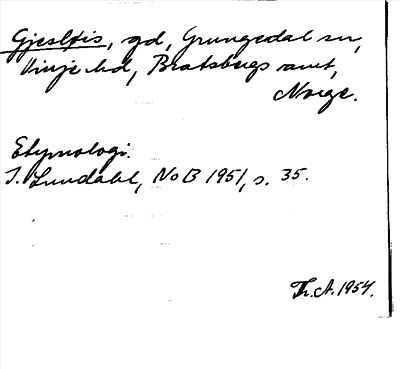 Gjesløis, gd, Grungedal sn,
Vinje hd, Bratsbergs amt,
Norge.
Etymologi.
I. Lundahl, NoB 1951, s. 35.
Th. A. 1954.